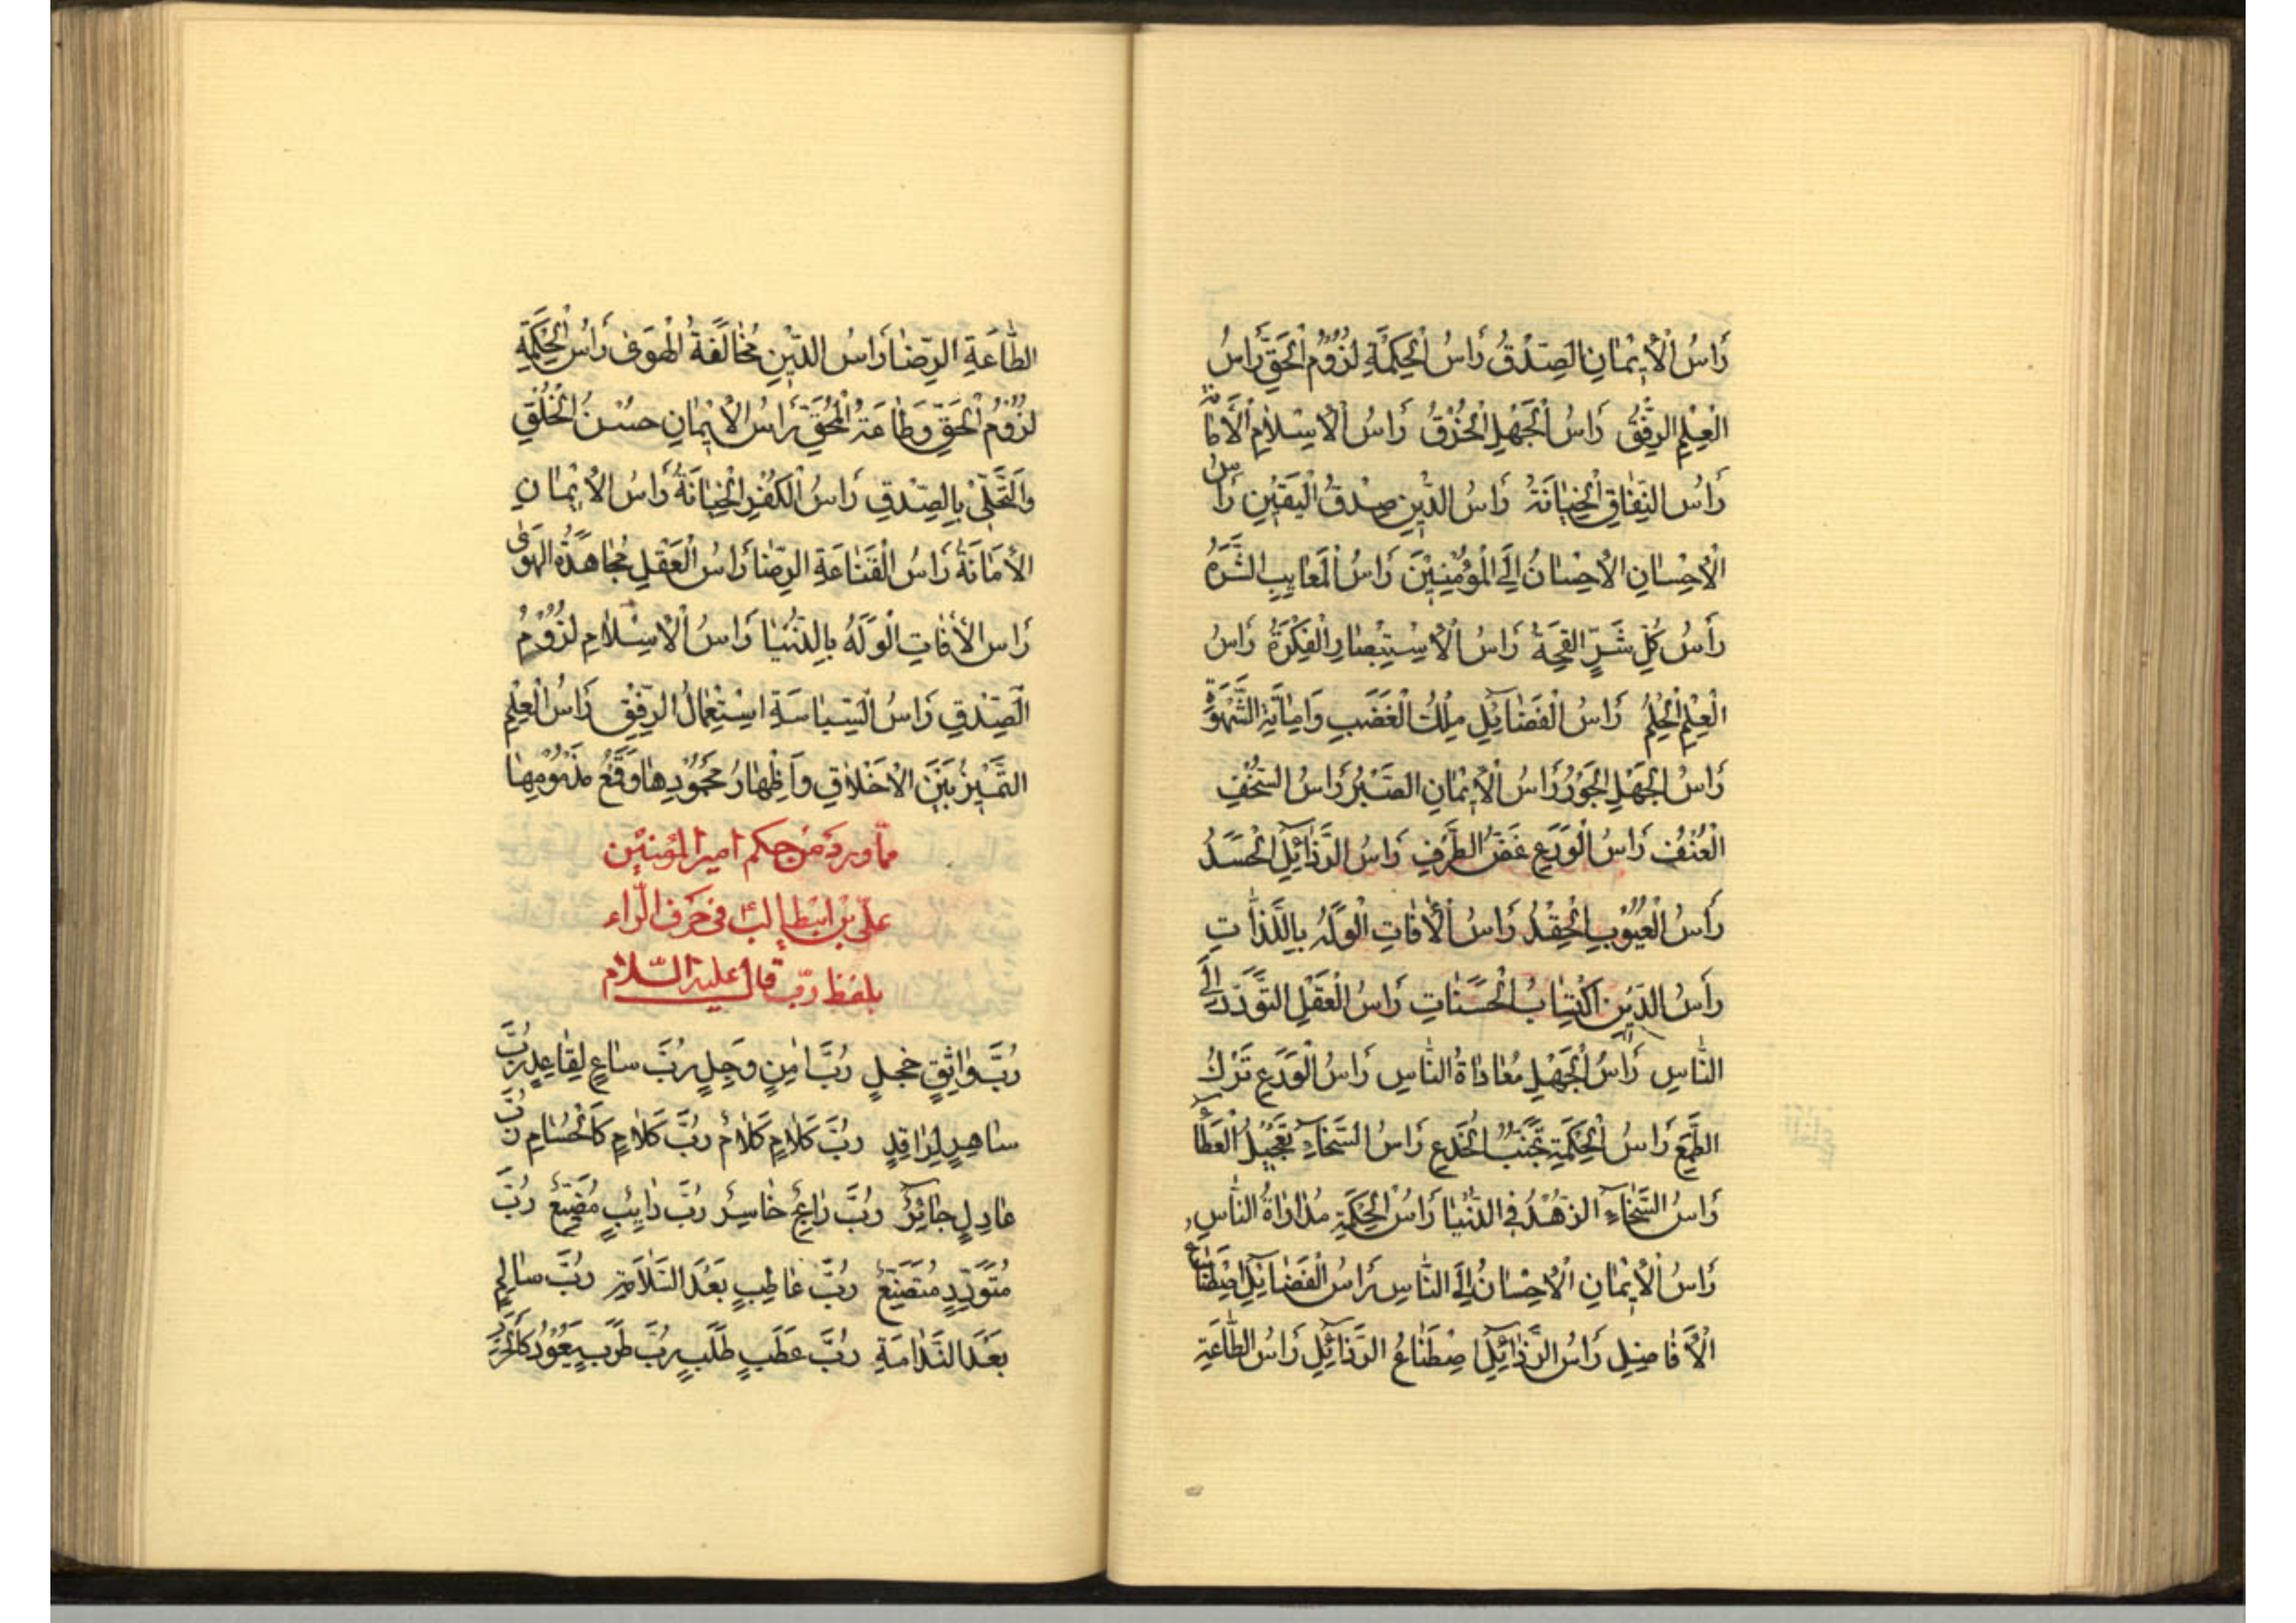 رَاسُ الْاِیْمٰانِ الصِّدْقُ رَاسُ الْحِكْمَةِ لُزُوْمُ الْحَقِّ رَاسُ
الْعِلْمِ الرِّفْقُ رَاسُ الْجَهْلِ الْخُرْقُ رَاسُ الْاِسْلٰامِ الْاَمٰانَةُ
رَاسُ النِّفٰاقِ الْخِیٰانَةُ رَاسُ الدّٖینِ صِدْقُ الْیَقٖینِ رَاسُ
الْاِحْسٰانِ الْاِحْسٰانُ اِلَی الْمُؤْمِنِیْنَ رَاسُ الْمَعٰایِبِ الشَّرَهُ
رَاسُ كُلِّ شَرٍّ القِحَةُ رَاسُ الْاِسْتِبْصٰارِ الْفِكْرَةُ رَاسُ
الْعِلْمِ الْحِلْمُ رَاسُ الْفَضٰآئِلِ مِلْكُ الْغَضَبِ وَاِمٰاتَةِ الشَّهْوَةِ
رَاسُ الْجَهْلِ الْجَوْرُ رَاسُ الْاِیْمٰانِ الصَّبْرُ رَاسُ السُّخْفِ
الْعُنْفُ رَاسُ الْوَرَعِ غَضُّ الطَّرْفِ رَاسُ الرَّذٰآئِلِ الْحَسَدُ
رَاسُ الْعُیُوْبِ الْحِقْدُ رَاسُ الْاٰفٰاتِ الْوَلَهُ بِاللَّذّٰاتِ
رَاسُ الدّٖیْنِ اكْتِسٰابُ الْحَسَنٰاتِ رَاسُ الْعَقْلِ التَّوَدُّدُ اِلَی
النّٰاسِ رَاسُ الْجَهْلِ مُعٰادٰاةُ النّٰاسِ رَاسُ الْوَرَعِ تَرْكُ
الطَّمَعِ رَاسُ الْحِكْمَةِ تَجَنُّبُ الْخُدَعِ رَاسُ السَّخٰآءِ تَعْجٖیْلُ الْعَطٰآءِ
رَاسُ السَّخٰآءِ الزُّهْدُ فِی الدُّنْیٰا رَاسُ الْحِكْمَةِ مُدٰارٰاةُ النّٰاسِ
رَاسُ الْاِیْمٰانِ الْاِحْسٰانُ اِلَی النّٰاسِ رَاسُ الْفَضٰآئِلِ اصْطِنٰاعُ
الْاَفٰاضِلِ رَاسُ الرَّذٰآئِلِ اصْطِنٰاعُ الرَّذٰآئِلِ رَاسُ الطّٰاعَةِ
الطّٰاعَةِ الرِّضٰا رَاسُ الدّٖیْنِ مُخٰالَفَةُ الْهَوٰی رَاسُ الْحِكْمَةِ
لُزُوْمُ الْحَقِّ وَطٰاعَةُ الْمُحِقِّ رَاسُ الْاِیْمٰانِ حُسْنُ الْخُلْقِ
وَالتَّحَلّٖیْ بِالصِّدْقِ رَاسُ الْكُفْرِ الْخِیٰانَةُ رَاسُ الْاِیْمٰانِ
الْاَمٰانَةُ رَاسُ الْقَنٰاعَةِ الرِّضٰا رَاسُ الْعَقْلِ مُجٰاهَدَةُ الهَوٰی
رَاسُ الْاٰفٰاتِ الْوَلَهُ بِالدُّنْیٰا رَاسُ الْاِسْلٰامِ لُزُوْمُ
الصِّدْقِ رَاسُ السِّیٰاسَةِ اسْتِعْمٰالُ الرِّفْقِ رَاسُ الْعِلْمِ
التَّمْیٖیْزُ بَیْنَ الْاَخْلٰاقِ وَاِظْهٰارُ مَحْمُوْدِهٰا وَقَمْعُ مَذْمُوْمِهٰا
ممّا ورد من حكم امیر المؤمنین
علیّ بن ابیطالب فی حرف الرّاء
بلفظ ربّ قال علیه السّلام
رُبَّ وٰاثِقٍ خَجِلٍ رُبَّ اٰمِنٍ وَجِلٍ رُبَّ سٰاعٍ لِقٰاعِدٍ رُبَّ
سٰاهِرٍ لِرٰاقِدٍ رُبَّ كَلٰامٍ كَلٰامٌ رُبَّ كَلٰامٍ كَالْحُسٰامِ رُبَّ
عٰادِلٍ جٰائِرٌ رُبَّ رٰابِحٍ خٰاسِرٌ رُبَّ دٰایِبٍ مُضَیِّعٌ رُبَّ
مُتَوَدِّدٍ مُتَصَنِّعٌ رُبَّ عٰاطِبٍ بَعْدَ السَّلٰامَةِ رُبَّ سٰالِمٍ
بَعْدَ النَّدٰامَةِ رُبَّ عَطَبٍ طَلَبٍ رُبَّ طَرَبٍ یَعُوْدُ كَالْحَرَبِ